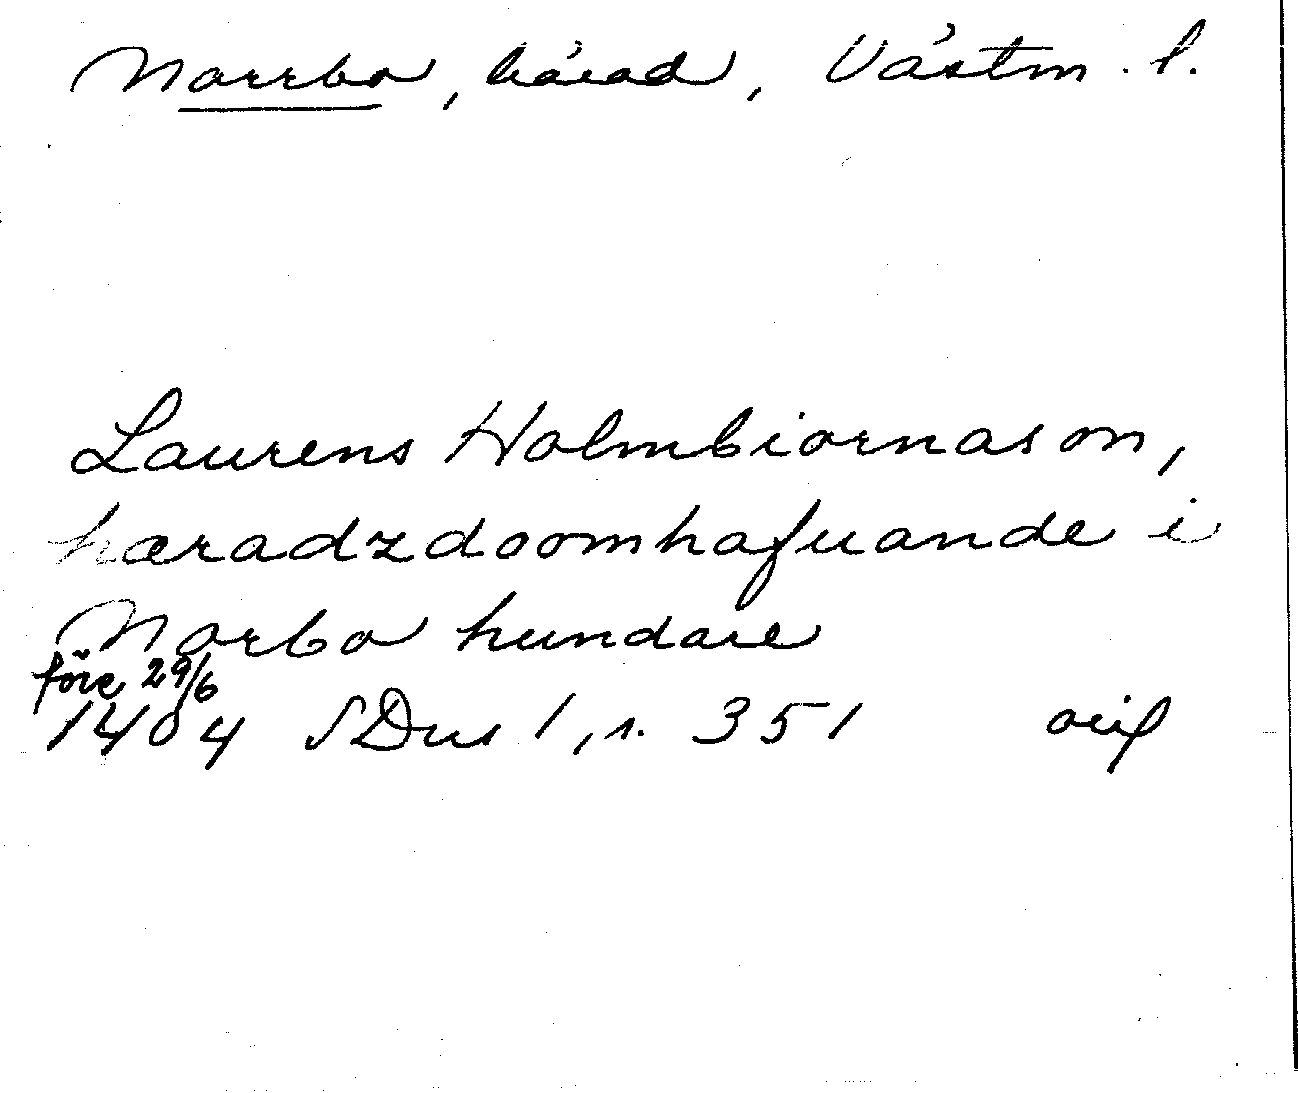 Norrbo, härad, Västm. l.
Laurens Holmbiornason,
hæradzdoomhafuande i
Norbo hundare
före 29/6
1404 SDns 1, s. 351 orig